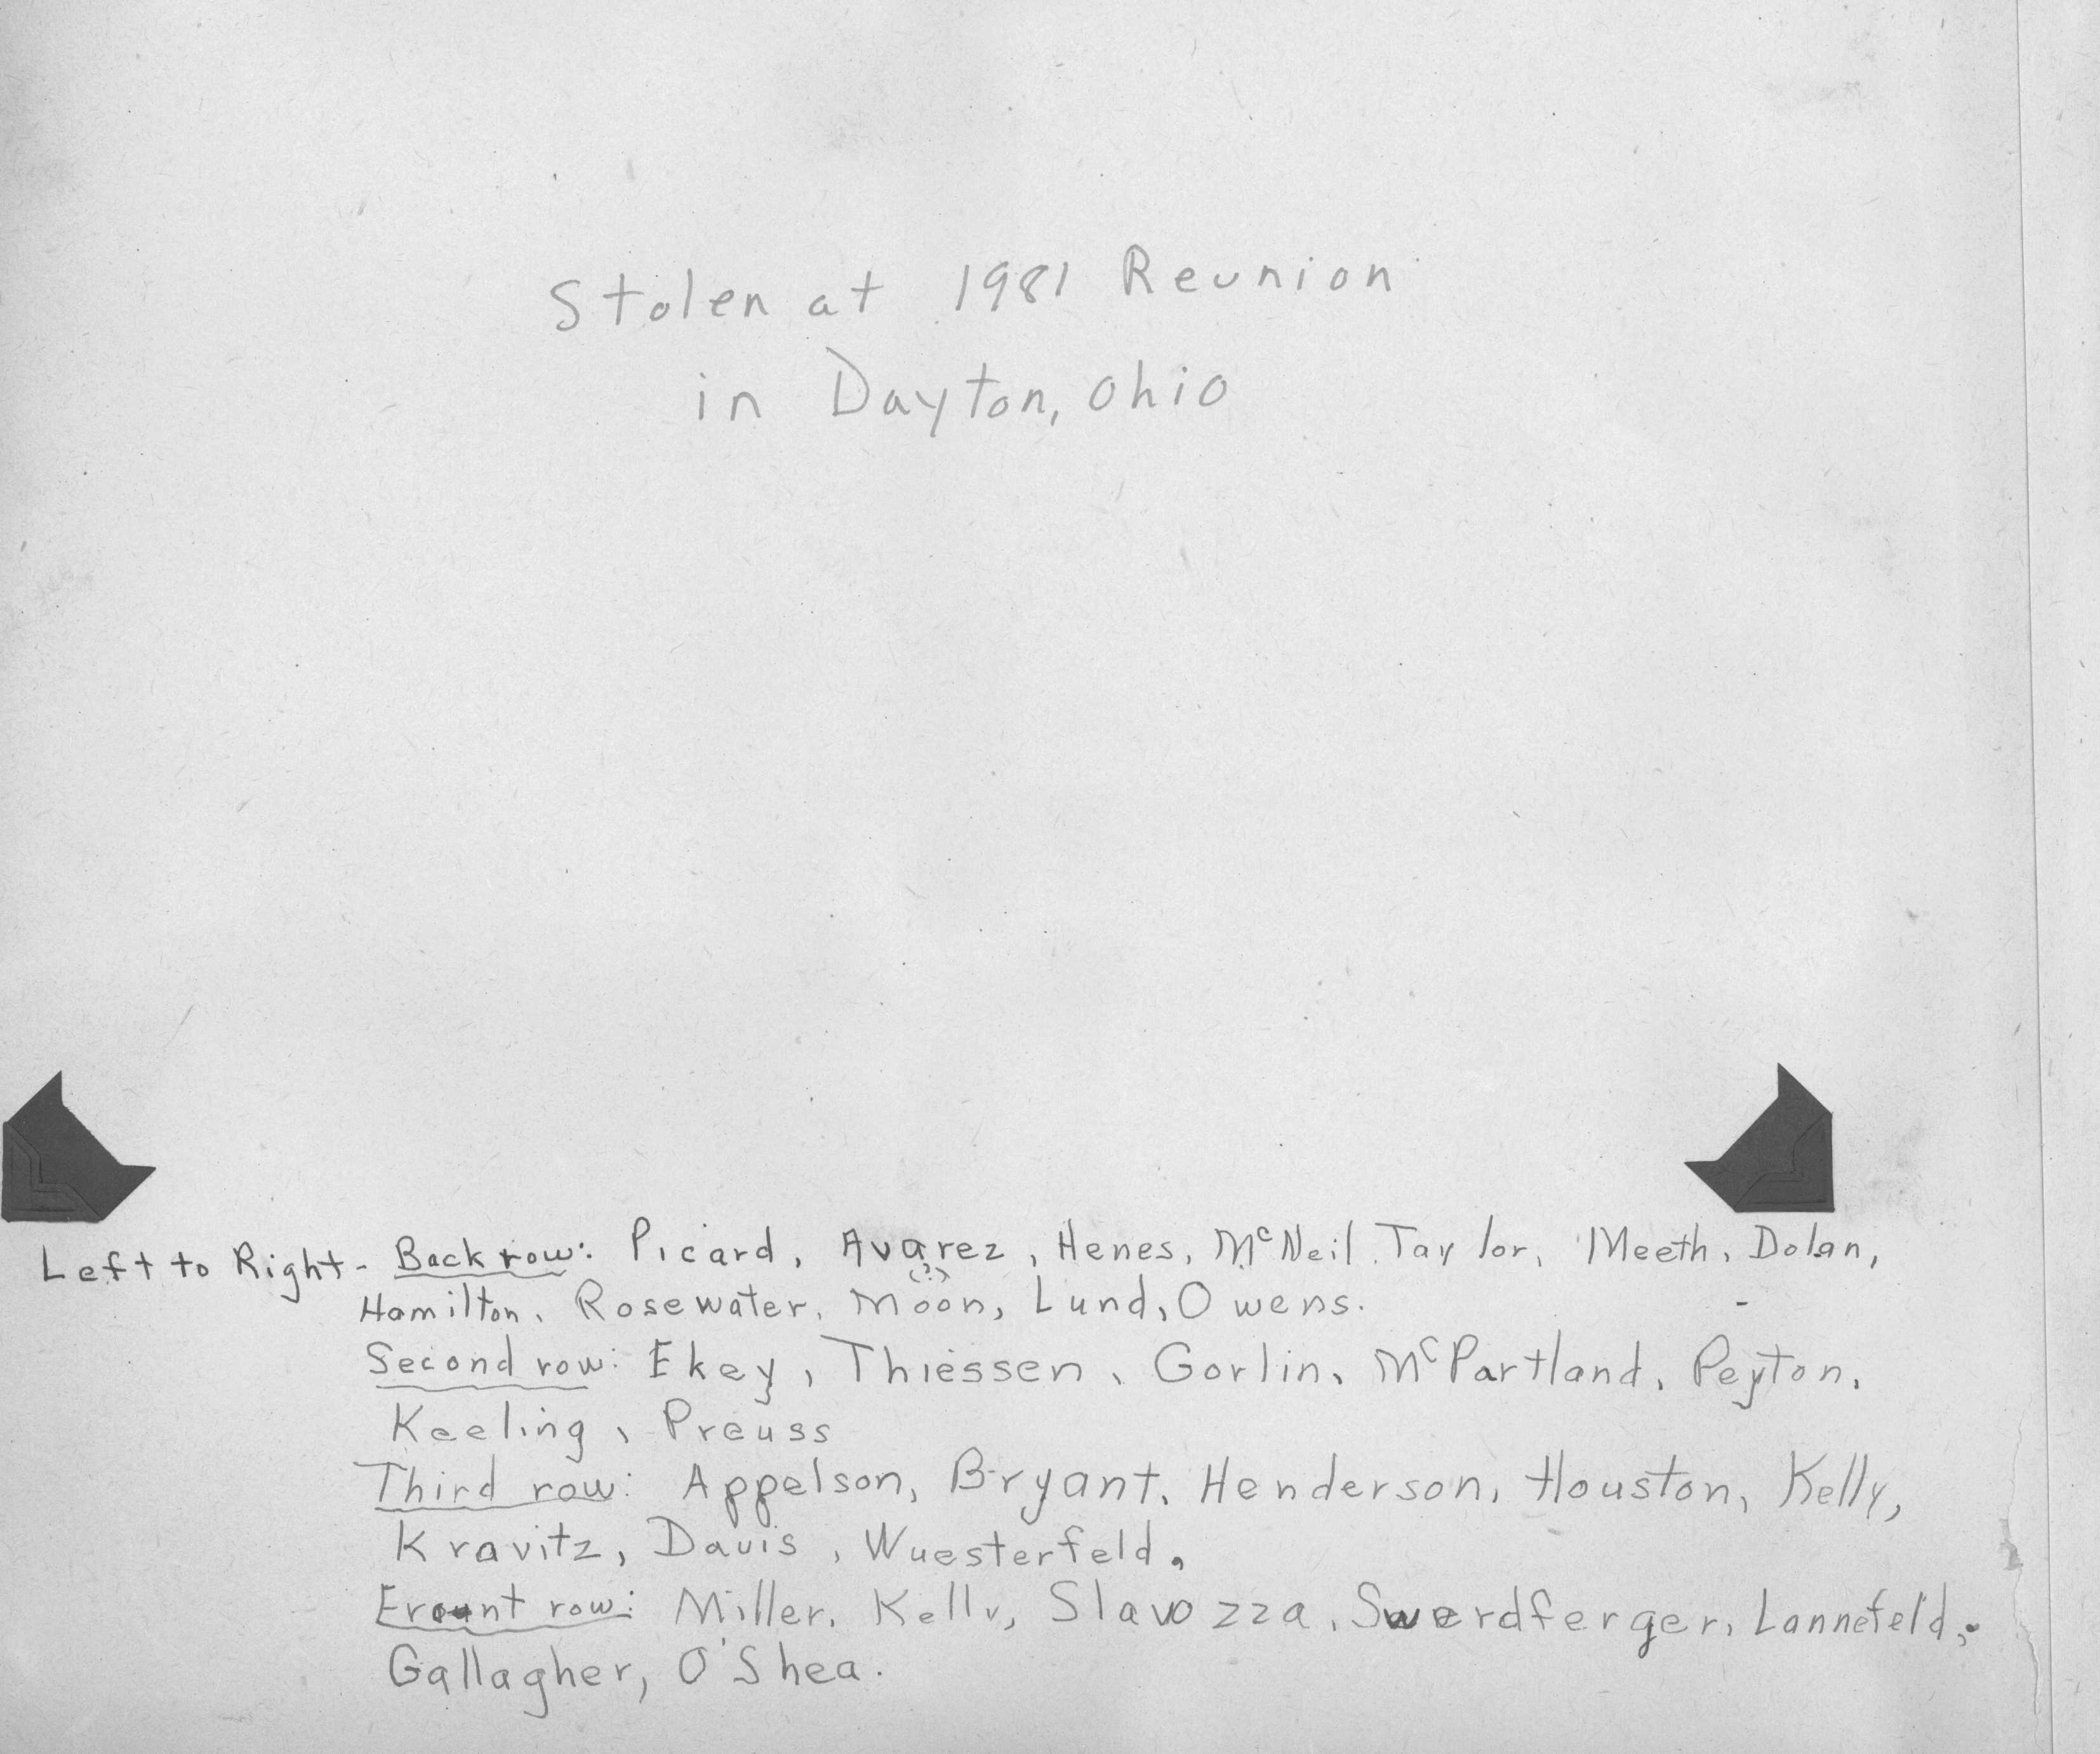 Stolen at 1981 Reunion
in Dayton, Ohio
Left to Right - Back row: Picard, Avarez, Henes, McNeil, Taylor, Meeth, Dolan,
(?)
Hamilton, Rosewater, Moon, Lund, Owens.
Second row: Ekey, Thiessen, Gorlin, McPartland, Peyton,
Keeling, Preuss
Third row: Appelson, Bryant, Henderson, Houston, Kelly,
Kravitz, Davis, Wuesterfeld.
row: Miller, Kelly, Slavozza, Swerdferger, Lannefeld,
Gallagher, O'Shea.